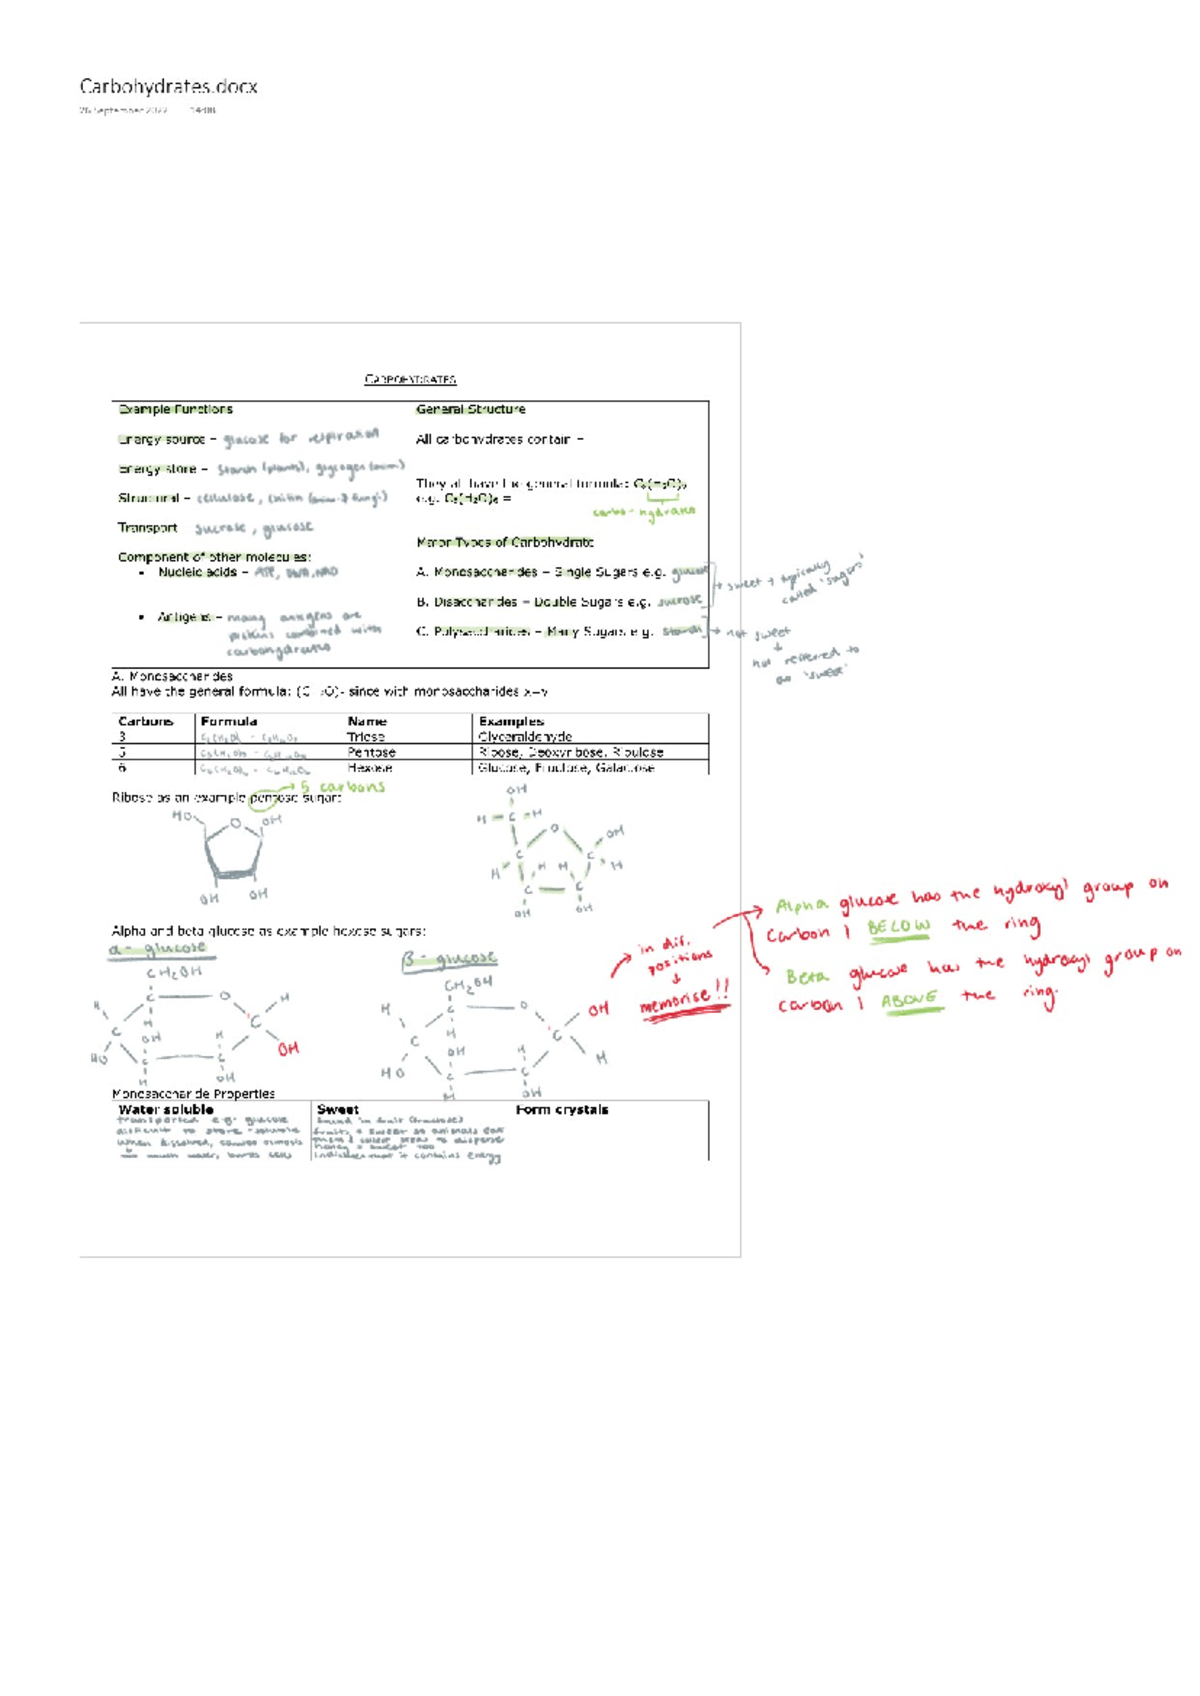 Carbohydrates.docx
26 September 2022 14:08
CARBOHYDRATES
Example Functions
Energy source – glucose for respiration
Energy store – starch (plants), glycogen
Structural – cellulose, chitin
Transport sucrose, glucose
Component of other molecules:
• Nucleic acids – ATP, DNA,
• Antigens – many antigens are
proteins combined with
carbohydrates
General Structure
All carbohydrates contain –
They all have the general formula: Cₓ(H₂O)ᵧ
e.g. C₆(H₂O)₆ =
carbo-hydrate
Major Types of Carbohydrate
A. Monosaccharides – Single Sugars e.g. glucose
B. Disaccharides – Double Sugars e.g. sucrose
C. Polysaccharides – Many Sugars e.g. starch
sweet + typically
called 'sugars'
not sweet
↓
not referred to
as 'sweet'
A. Monosaccharides
All have the general formula: since with monosaccharides x=y
Carbons Formula Name Examples
3 Triose Glyceraldehyde
5 Pentose Ribose, Deoxyribose, Ribulose
6 Hexose Glucose, Fructose, Galactose
5 carbons
Ribose as an example pentose sugar:
HO O OH
OH OH
OH
H C H
O OH
C C
H H H H
C C
OH OH
Alpha and beta glucose as example hexose sugars:
α - glucose
CH₂OH
C O H
H H C
C OH H OH
HO C C
H OH
β - glucose
CH₂OH
H C O OH
H C
C OH H H
HO C C
H OH
in dif.
positions
↓
memorise!!
Alpha glucose has the hydroxyl group on
carbon 1 BELOW the ring
Beta glucose has the hydroxyl group on
carbon 1 ABOVE the ring.
Monosaccharide Properties
Water soluble Sweet Form crystals
transported e.g. glucose
difficult to store
when dissolved, causes osmosis
much water, bursts cells
found in fruit (fructose)
to disperse
it contains energy